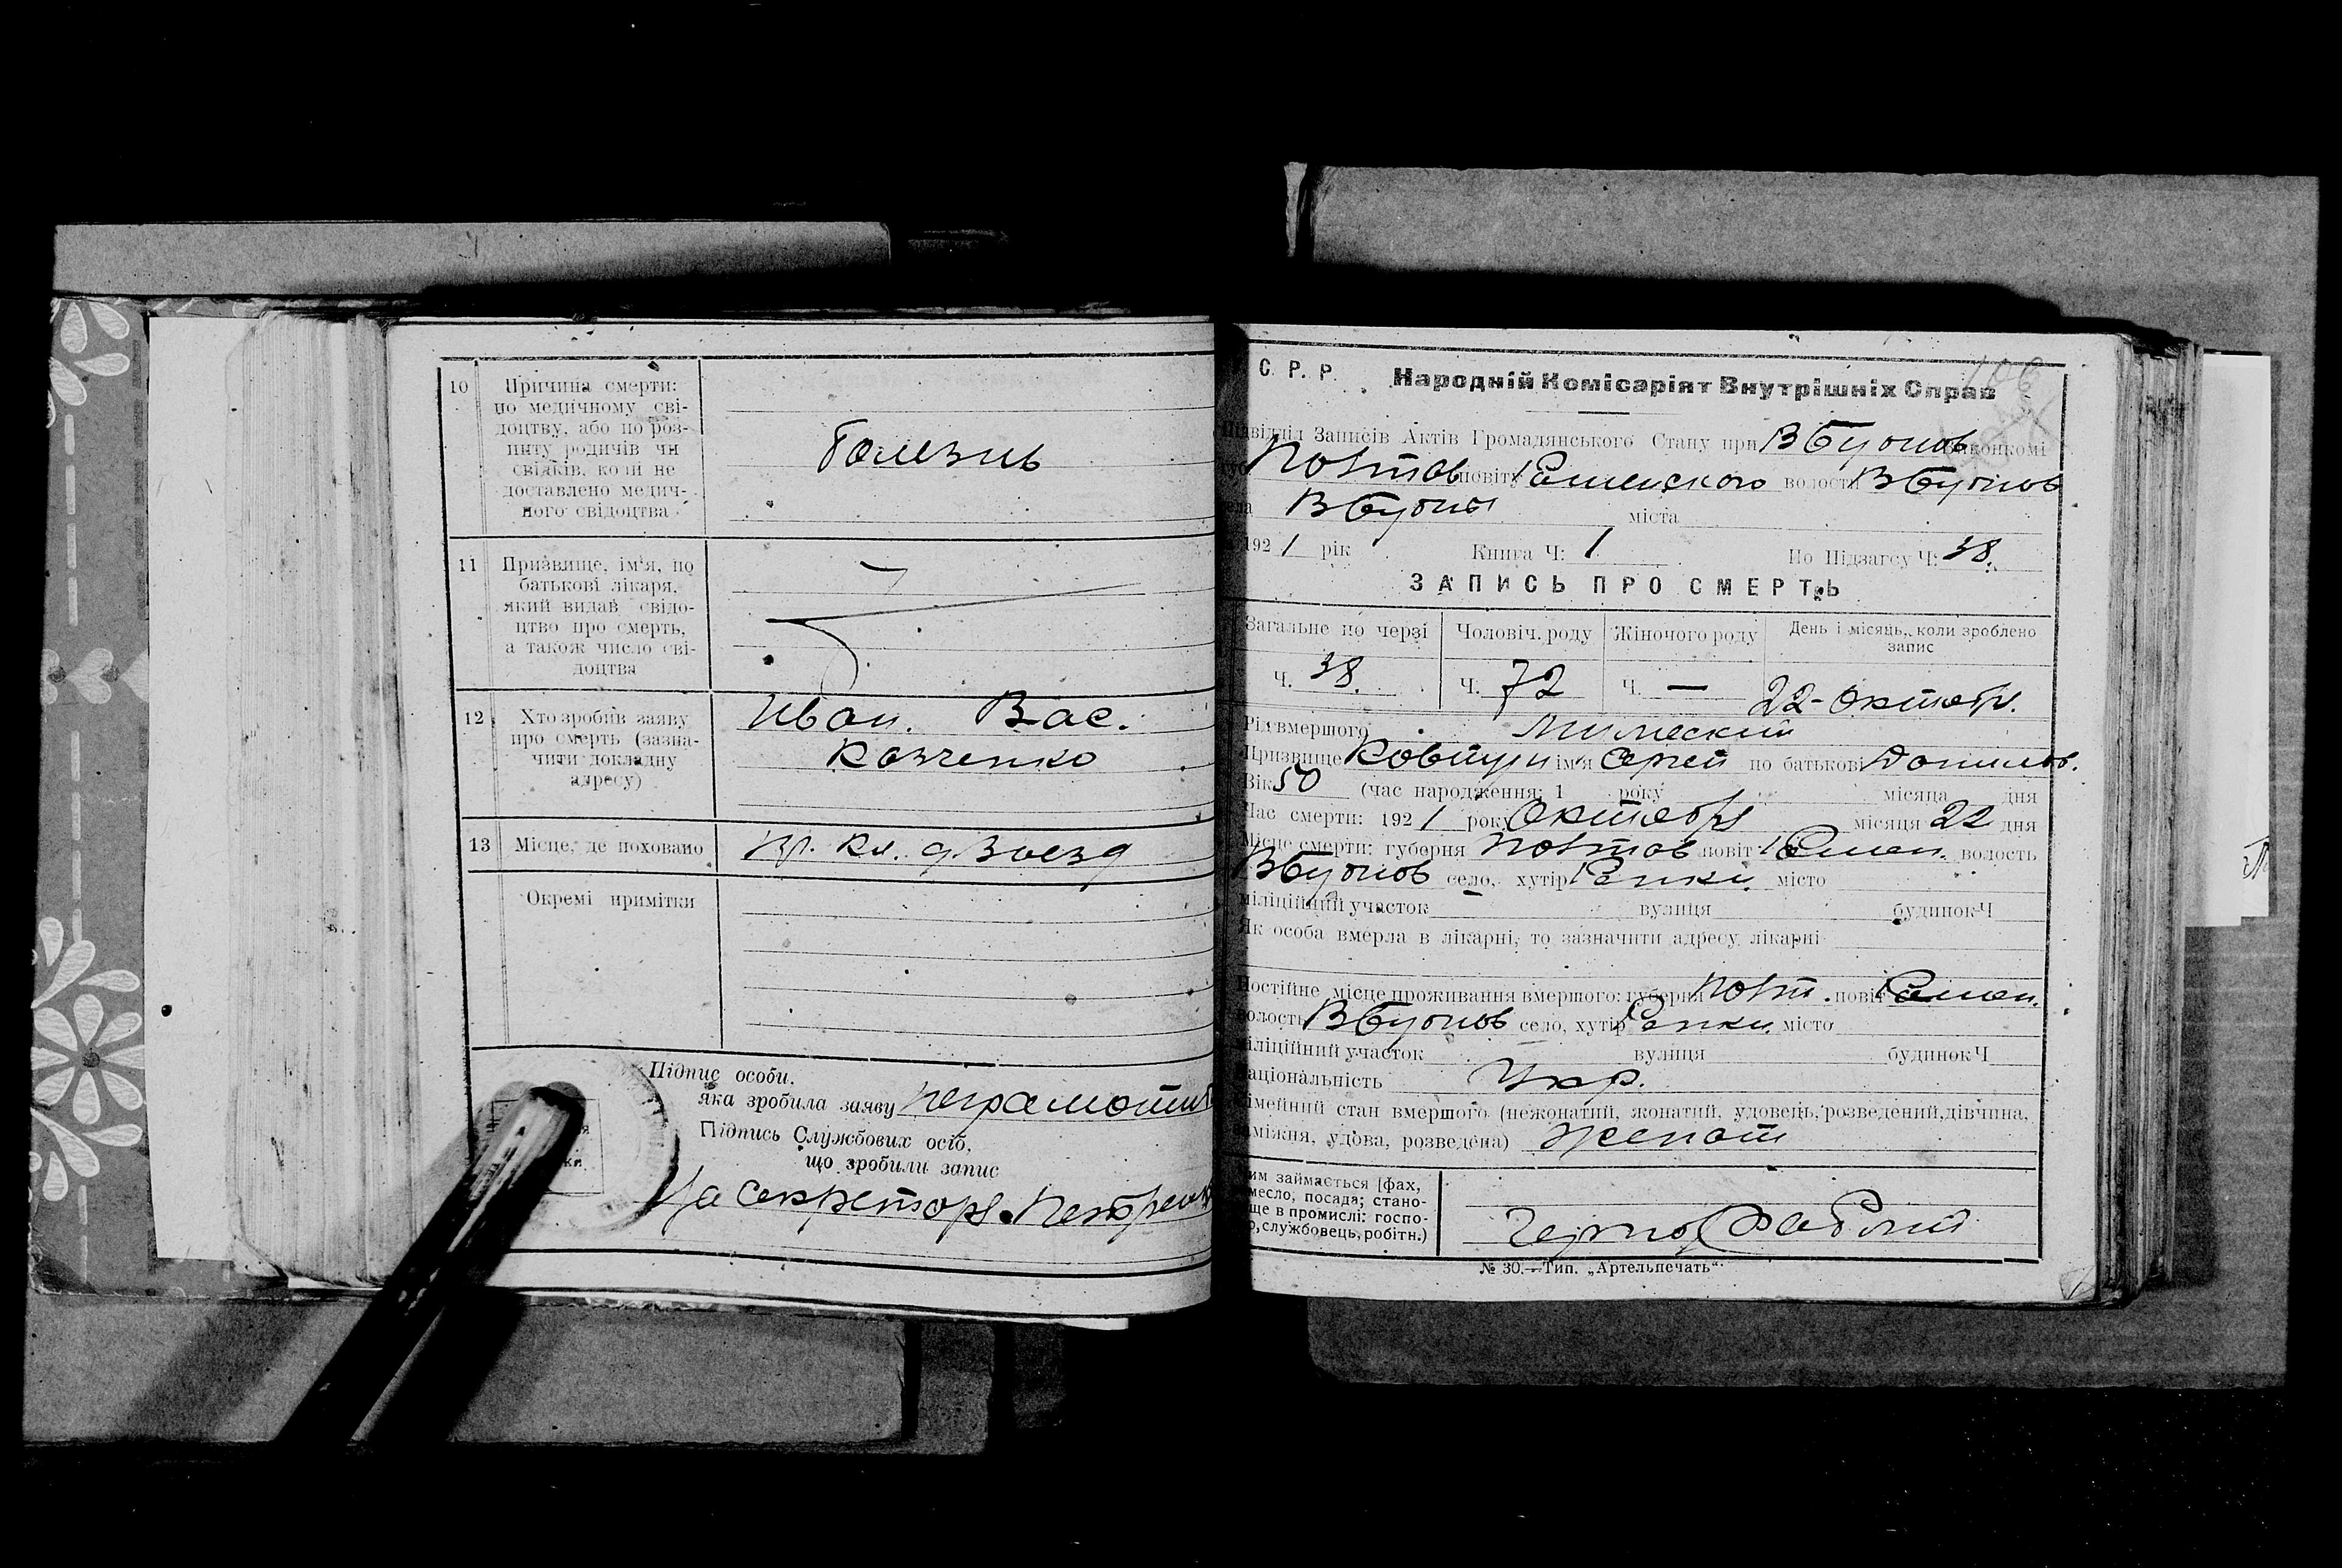 10 Причина смерти:
по медичному сві-
доцтву, або по роз-
питу родичів чи
свідків, коли не
доставлено медич-
ного свідоцтва
Болезнь
11 Призвище, ім'я, по
батькові лікаря,
який видав свідо-
цтво про смерть,
а також число сві-
доцтва
12 Хто зробив заяву
про смерть (зазна-
чити докладну
адресу)
Иван. Вас.
Козченко
13 Місце, де поховано
Окремі примітки
Підпис особи,
яка зробила заяву неграмотный
Підпись Службових осіб,
що зробили запис
За секреторя
С. Р. Р. Народній Комісаріят Внутрішніх Справ
106
Підвідділ Записів Актів Громадянського Стану при Вбудищ Виконкомі
Полтав повіту волости
села міста
1921 рік Книга Ч: 1 По Підзагсу Ч: 38.
ЗАПИСЬ ПРО СМЕРТЬ
Загальне по черзі Чоловіч. роду Жіночого роду День і місяць, коли зроблено
запис
Ч. 38. Ч. 72 Ч. — 22-Октяб.
Рід вмершого Мужеский
Призвище Ковтун ім'я Сергей по батькові Данилов.
Вік 50 (час народження: 1 року місяца дня
Час смерти: 1921 року Октября місяця 22 дня
Місце смерти: губерня Полтав повіт волость
село, хутір місто
міліційний участок вулиця будинок Ч
Як особа вмерла в лікарні, то зазначити адресу лікарні
Постійне місце проживання вмершого: губерня Полт. повіт
волость село, хутір місто
міліційний участок вулиця будинок Ч
національність Укр.
Сімейний стан вмершого (нежонатий, жонатий, удовець, розведений, дівчина,
заміжня, удова, розведена) Женат
им займається [фах,
месло, посада; стано-
ще в промислі: госпо-
р, службовець, робітн.)
Чернорабочий
№ 30.—Тип. „Артельпечать"